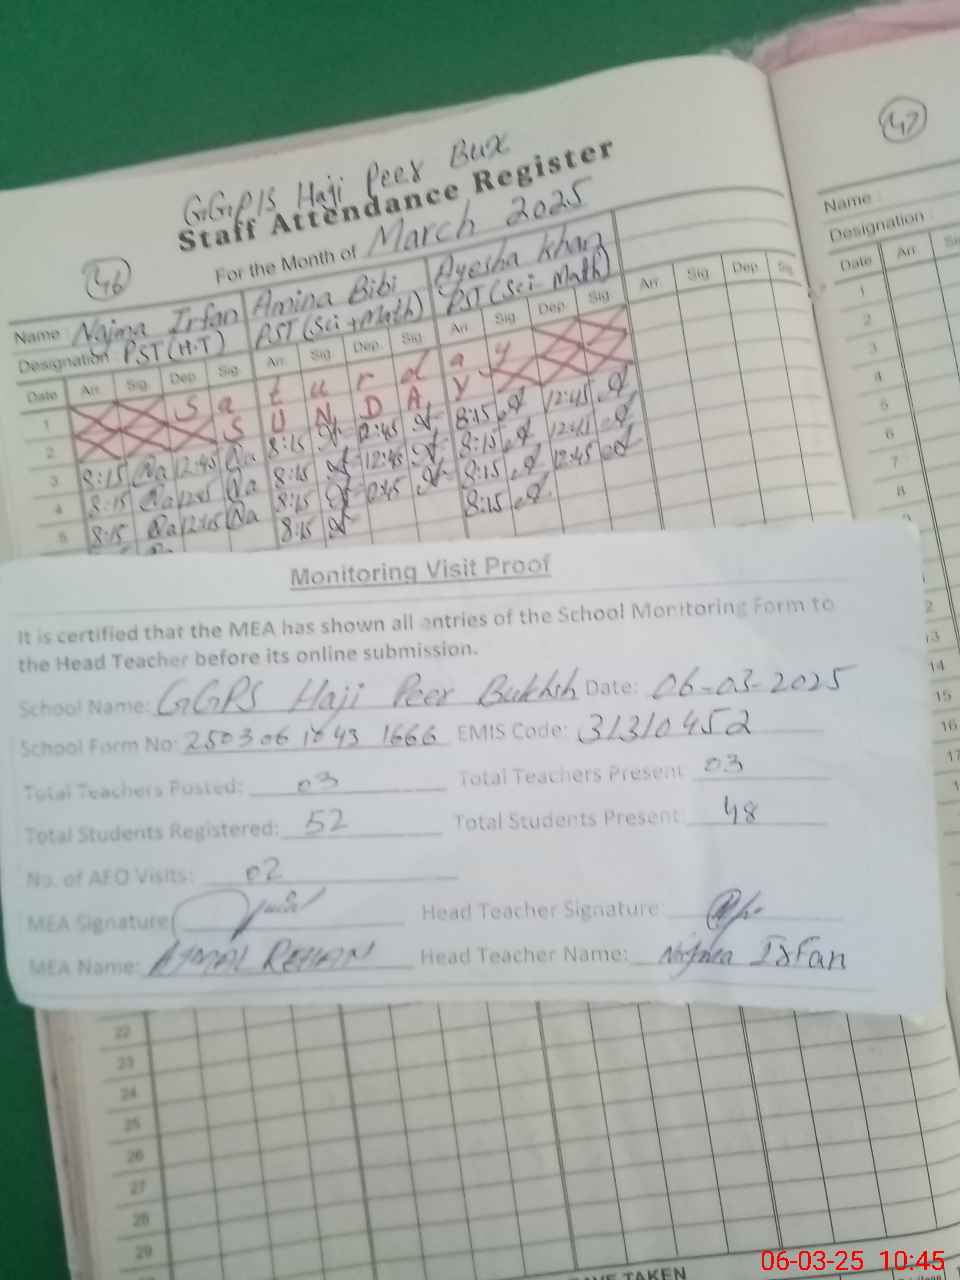 GGP/S Haji Peer Bux
Staff Attendance Register
For the Month of March 2025
46
47
Name Najma Irfan Amina Bibi Ayesha Khan
Designation PST (H.T) PST (Sci + Math) PST (Sci Math)
Date Arr. Sig. Dep. Sig Arr. Sig Dep. Sig Arr. Sig Dep. Sig Arr. Sig Dep Sig
1 S a t u r d a y
2 S U N D A Y
3 8:15 Na 12:45 Na 8:15 12:45 8:15 12:45
4 8:15 Na 12:45 Na 8:15 12:45 8:15 12:45
5 8:15 Na 12:45 Na 8:15 12:45 8:15 12:45
8:15 8:15
Name :
Designation
Date Arr. Sig
1
2
3
4
5
6
7
8
Monitoring Visit Proof
It is certified that the MEA has shown all entries of the School Monitoring Form to
the Head Teacher before its online submission.
School Name: GGPS Haji Peer Bukhsh Date: 06-03-2025
School Form No: 250306 1043 1666 EMIS Code: 31310452
Total Teachers Posted: 03 Total Teachers Present 03
Total Students Registered: 52 Total Students Present: 48
No. of AEO Visits: 02
MEA Signature Head Teacher Signature:
MEA Name: REHAN Head Teacher Name: Najma Irfan
14
15
16
17
22
23
24
25
26
27
28
29
TAKEN
06-03-25 10:45